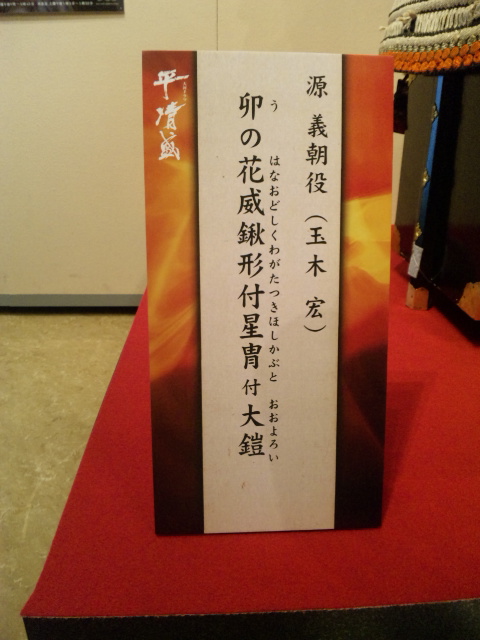 源 義朝役（玉木 宏）
う はなおどしくわがたつきほしかぶと おおよろい
卯の花威鍬形付星冑付大鎧
平清盛